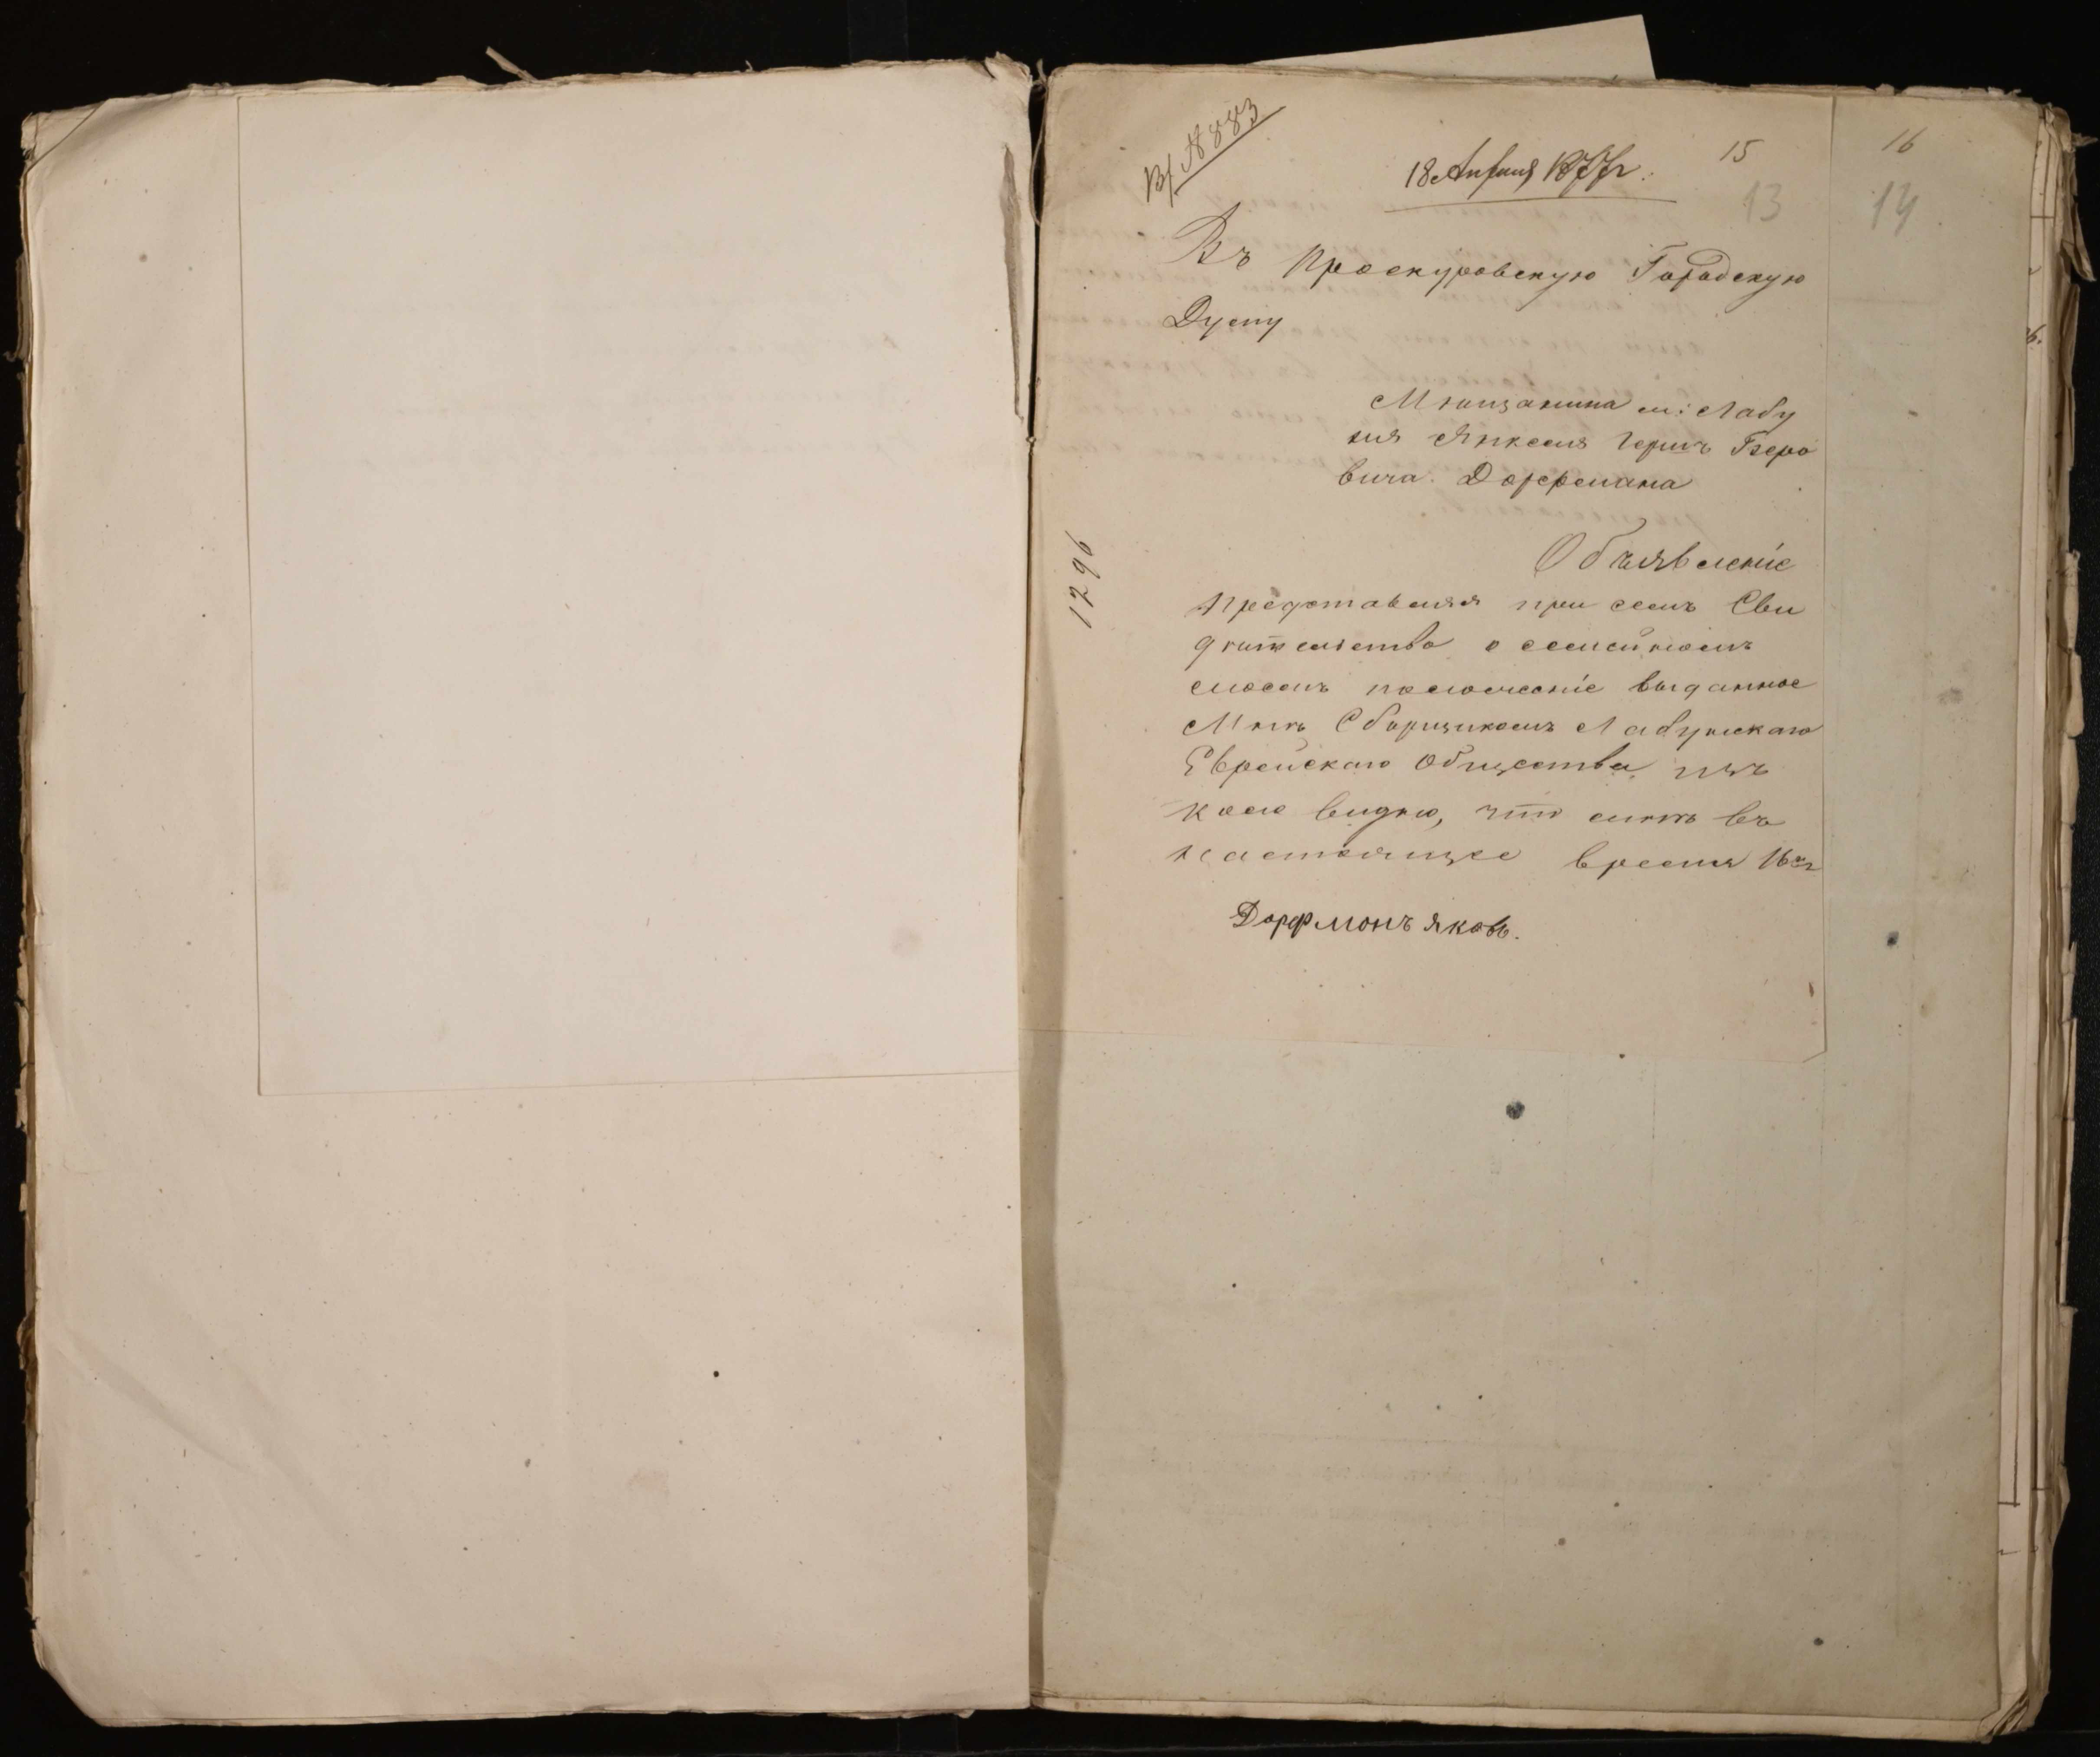 Вх № 883
18 Апреля 1877 г.
15
16
13
14
Въ Проскуровскую Городскую
Думу
Мѣщанина м: Лабу
ня Янкеля Герша Беро
вича Дорфмана
Объявленіе
Представляя при семъ Сви
дѣтельство о семейномъ
моемъ положеніе выданное
Мнѣ Сборщикомъ Лабунскаго
Еврейскаго Общества изъ
коего видно, что мнѣ въ
настоящее время 16
Дорфмонъ Яковъ.
1296